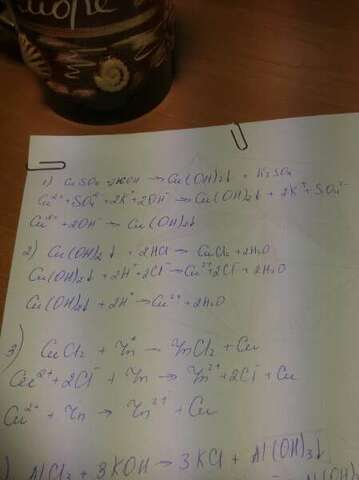 море
1) CuSO4 + 2KOH → Cu(OH)2↓ + K2SO4
Cu²⁺ + SO4²⁻ + 2K⁺ + 2OH⁻ → Cu(OH)2↓ + 2K⁺ + SO4²⁻
Cu²⁺ + 2OH⁻ → Cu(OH)2↓
2) Cu(OH)2↓ + 2HCl → CuCl2 + 2H2O
Cu(OH)2↓ + 2H⁺ + 2Cl⁻ → Cu²⁺ + 2Cl⁻ + 2H2O
Cu(OH)2↓ + 2H⁺ → Cu²⁺ + 2H2O
3) CuCl2 + Zn → ZnCl2 + Cu
Cu²⁺ + 2Cl⁻ + Zn → Zn²⁺ + 2Cl⁻ + Cu
Cu²⁺ + Zn → Zn²⁺ + Cu
) AlCl3 + 3KOH → 3KCl + Al(OH)3↓